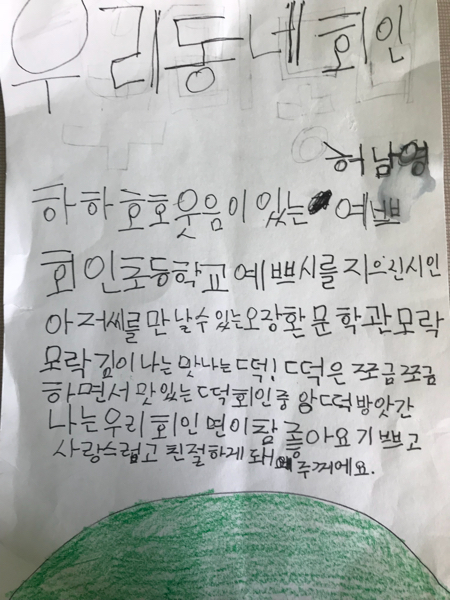 우리동네회인
허남영
하하호호웃음이있는 예쁘
회인초등학교예쁘시를지으진시인
아저씨를만날수있는오장환문학관모락
모락김이나는맛나는떡! 떡은쪼금쪼금
하면서맛있는떡회인중앙떡방앗간
나는우리회인면이참좋아요기쁘고
사랑스럽고친절하게돼 주꺼에요.